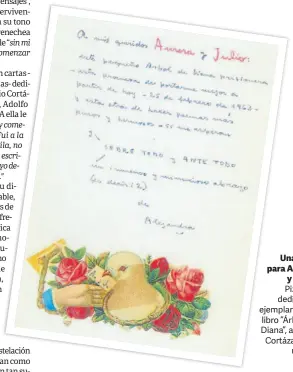 ensajes",
erviven-
su tono
enechea
de "sin mi
omenzar
n cartas-
as-dedi-
io Cortá-
, Adolfo
A ella le
y come-
Fui a la
lla, no
escri-
yo de-
."
u di-
able,
s de
fre-
ica
no-
u-
no
e
n,
n
stelación
an como
n tan su-
A mis queridos Aurora y Julio:
este pequeño Árbol de Diana prisionero
esta promesa de portarme mejor a
partir de hoy - 25 de febrero de 1963 -
y esta otra de hacer poemas más
puros y hermosos - si me esperan.
Y,
SOBRE TODO y ANTE TODO
un inmenso y minucioso abrazo
(es decir: 2)
de
Alejandra
Una
para A
y
Pi
dedi
ejemplar
libro "Árb
Diana", a
Cortáza